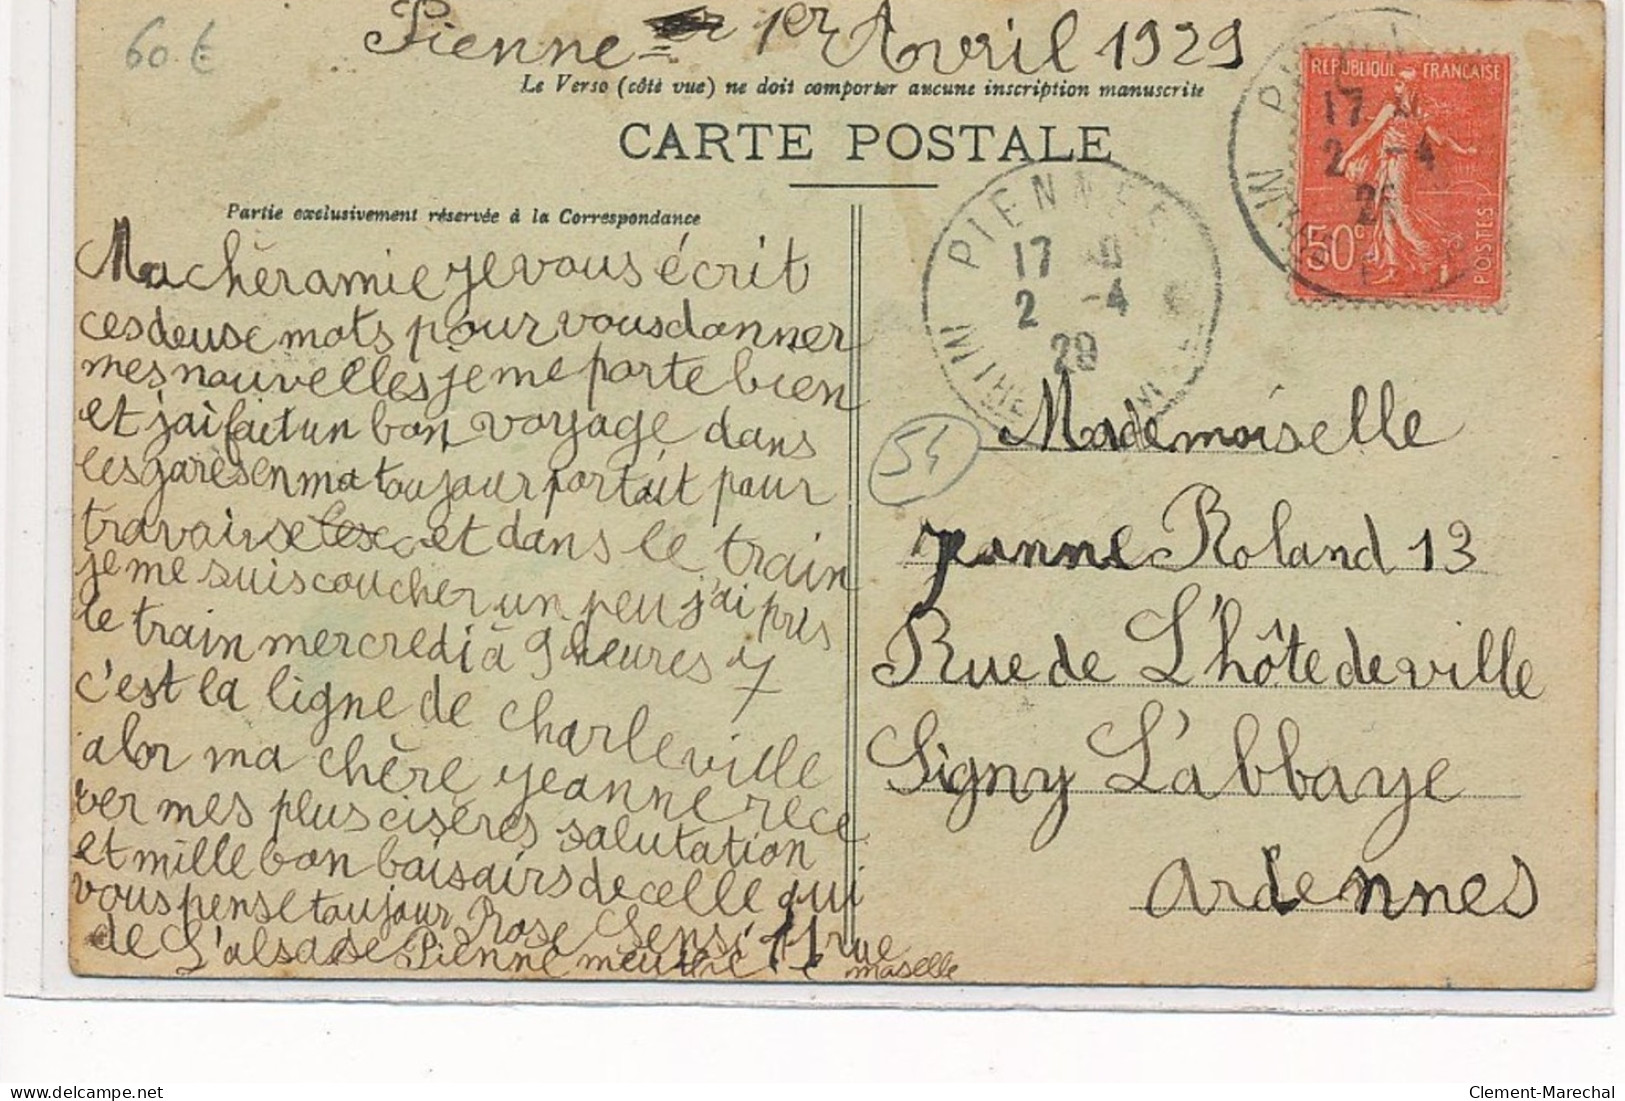 60 €
Pienne = 1er Avril 1929
Le Verso (côté vue) ne doit comporter aucune inscription manuscrite
CARTE POSTALE
Partie exclusivement réservée à la Correspondance
Ma chèramie je vous écrit
ces deuse mots pour vous donner
mes nouvelles je me porte bien
et j'ai fait un bon voyage dans
les garès en ma toujour portait pour
travairse et dans le train
je me suis coucher un peu j'ai pris
le train mercredi à 9 heures 7
c'est la ligne de charleville
alor ma chère jeanne rece
ver mes plus cisères salutation
et mille bon baisairs de celle qui
vous pense toujour Rose Sensi 11 rue
de L'alsase Pienne meurthe e maselle
REPUBLIQUE FRANÇAISE
50c
POSTES
17
2 -4
PIENNE
17
2 -4
29
54
Mademoiselle
jeanne Roland 13
Rue de L'hôte de ville
Signy L'abbaye
ardennes
Clement-Marechal